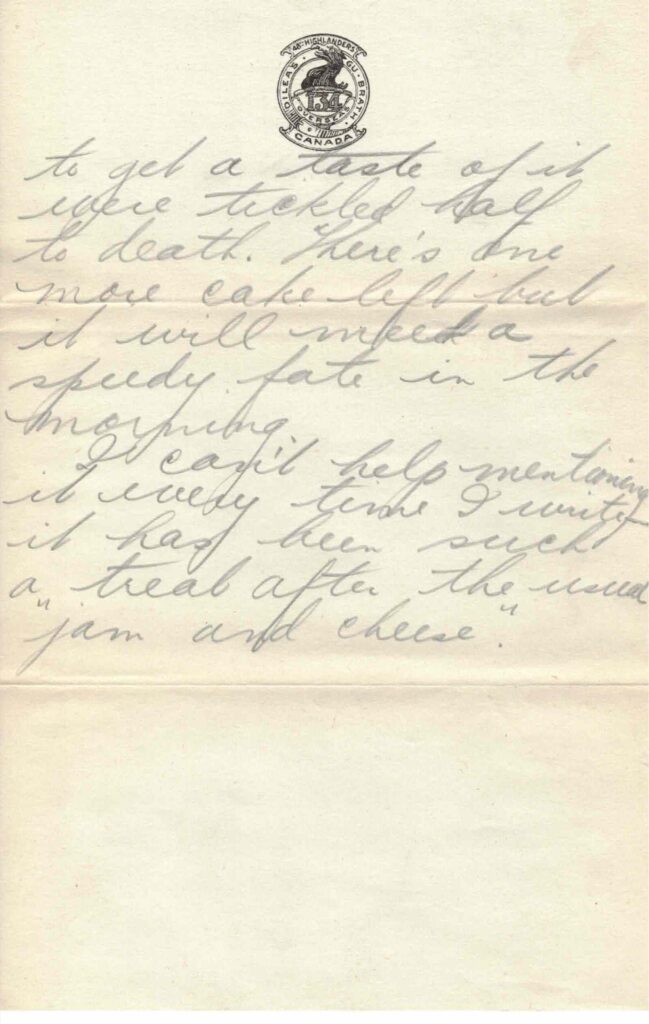 48TH HIGHLANDERS
DILEAS GU BRATH
134
OVERSEAS
CANADA
to get a taste of it
were tickled half
to death. There's one
more cake left but
it will meet a
speedy fate in the
morning
I can't help mentioning
it every time I write
it has been such
a treat after the usual
"jam and cheese".